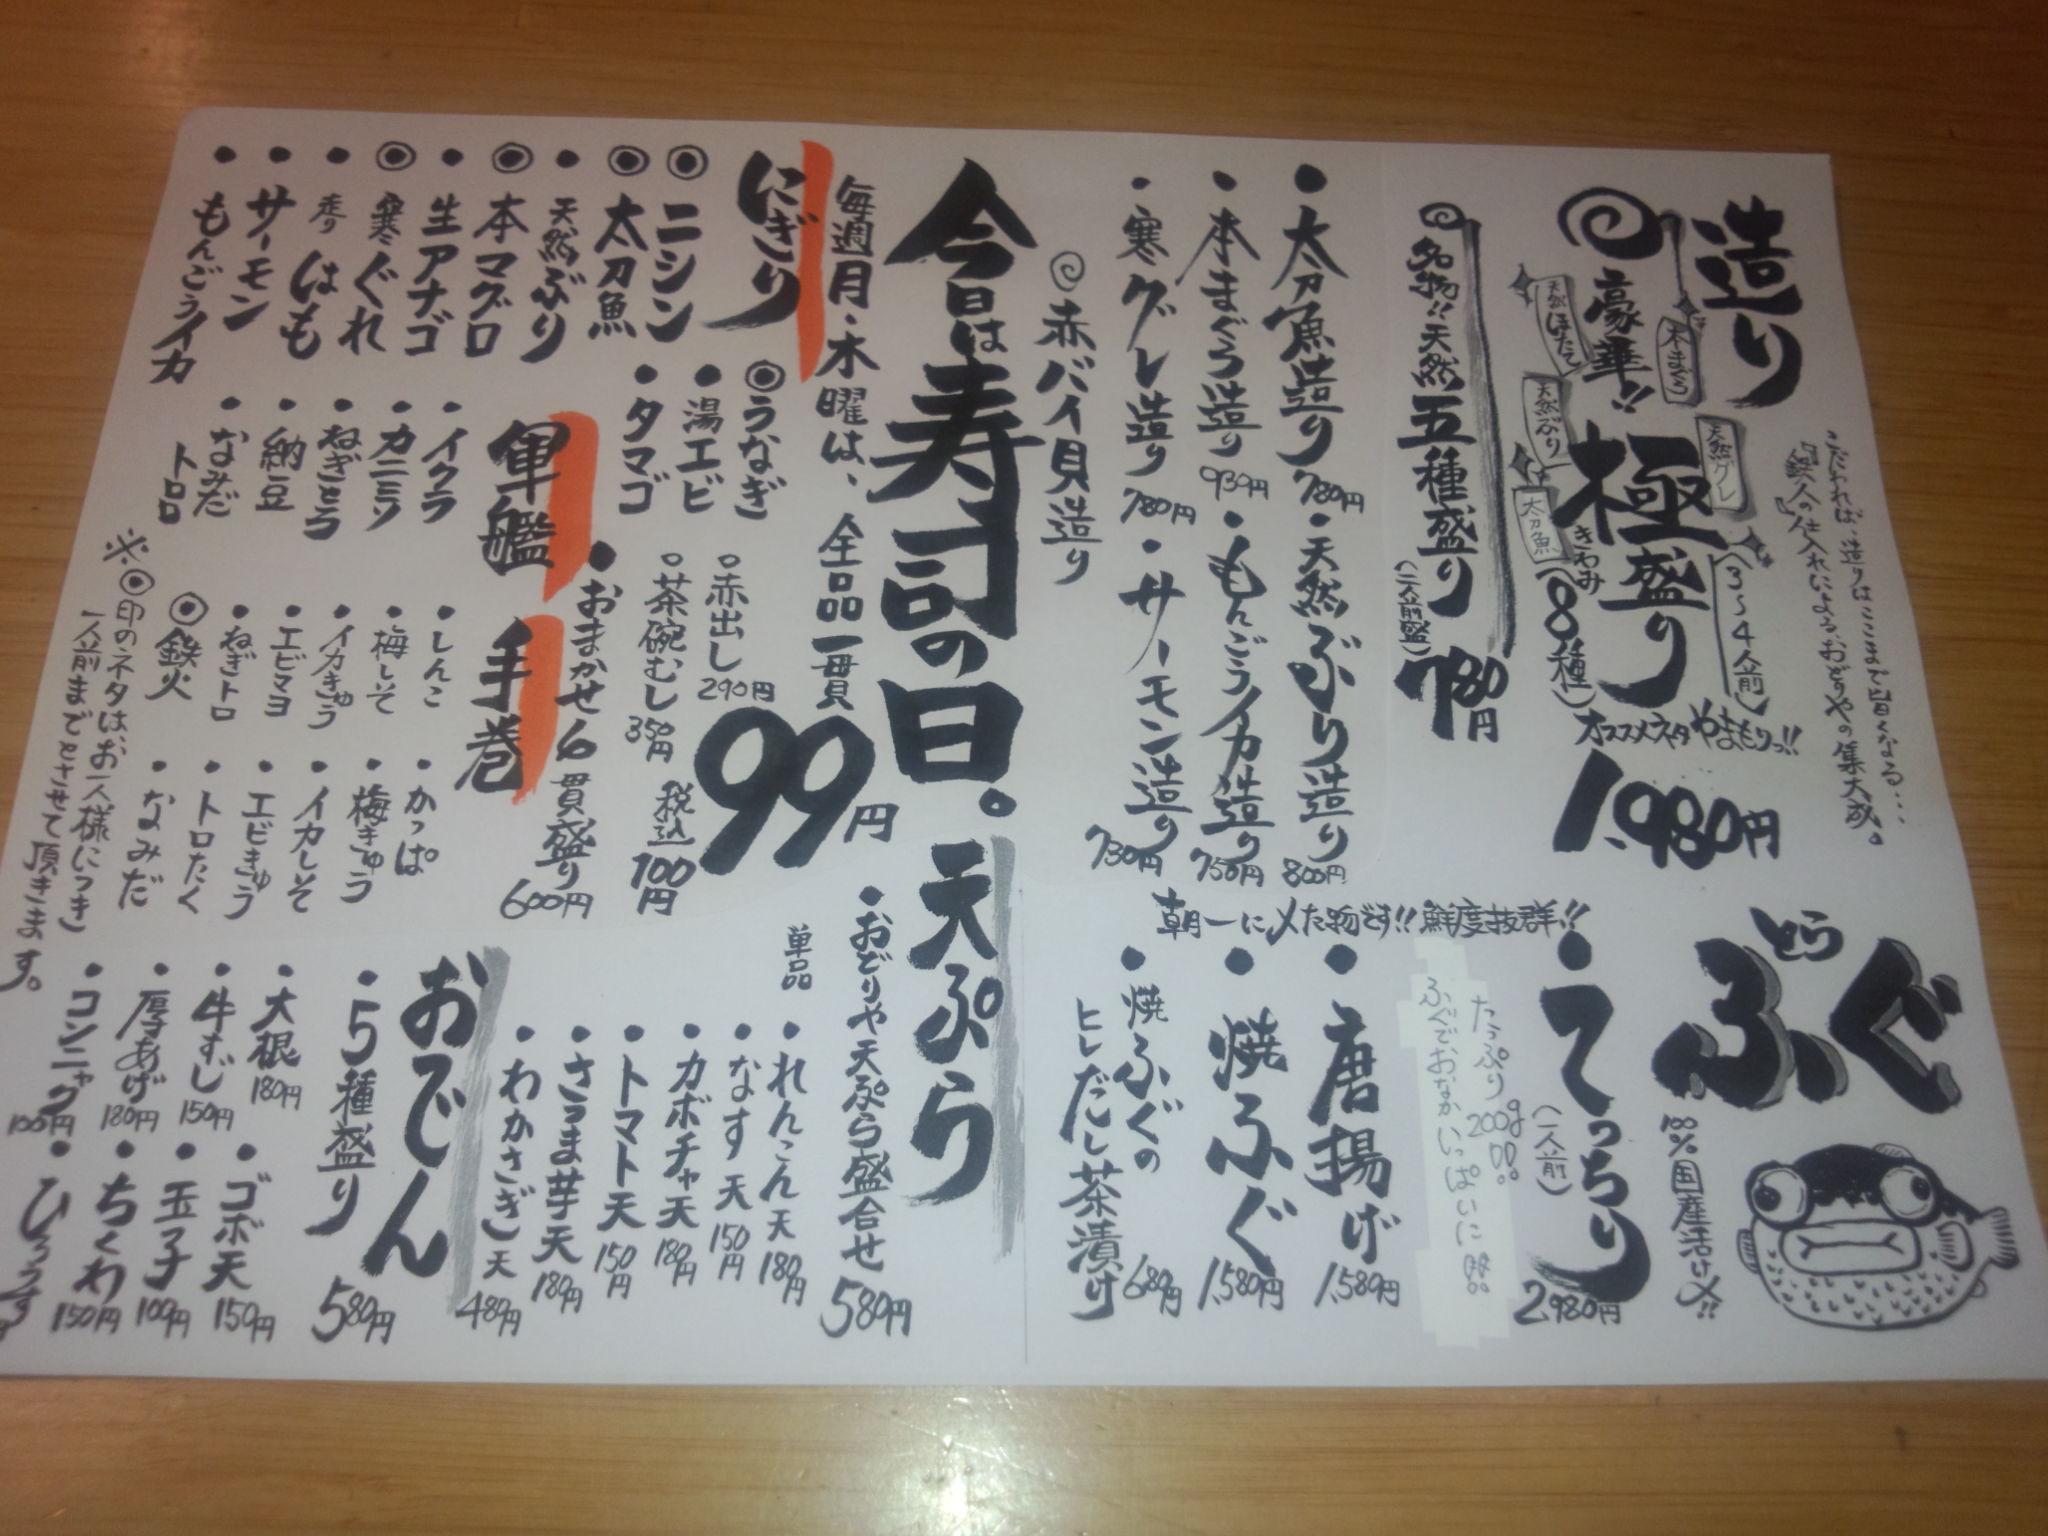 造り
こだわれば、造りはここまで旨くなる…
『鉄人の仕入れ』による、おどりやの集大成。
豪華!! 極盛り(8種)
きわみ
(3〜4人前)
本まぐろ
天然グレ
天然ほたて
天然ぶり
太刀魚
オススメネタやまもりっ!!
1,980円
名物!!天然五種盛り
(一人前盛)
780円
・太刀魚造り 780円
・天然ぶり造り 800円
・本まぐろ造り 930円
・もんごうイカ造り 750円
・寒グレ造り 780円
・サーモン造り 730円
赤バイ貝造り
とらふぐ
100%国産活け〆!!
朝一に〆た物です!!鮮度抜群!!
・てっちり
(一人前)
2,980円
たっぷり200g
ふぐでおなかいっぱいに
・唐揚げ 1,580円
・焼ふぐ 1,580円
・焼ふぐの
ヒレだし茶漬け 680円
今日は寿司の日。
毎週月・木曜は、全品一貫
99円
税込100円
にぎり
◎ニシン
◎太刀魚
・天然ぶり
◎本マグロ
・生アナゴ
◎寒ぐれ
・走りはも
・サーモン
・もんごうイカ
◎うなぎ
・湯エビ
・タマゴ
○赤出し 290円
○茶碗むし 350円
・おまかせ6貫盛り 600円
軍艦
・イクラ
・カニミソ
・ねぎとろ
・納豆
・なみだ
トロロ
手巻
・しんこ
・梅しそ
・イカきゅう
・エビマヨ
・ねぎトロ
◎鉄火
・かっぱ
・梅きゅう
・イカしそ
・エビきゅう
・トロたく
・なみだ
※◎印のネタは、お一人様につき
一人前までとさせて頂きます。
天ぷら
・おどりや天ぷら盛合せ 580円
単品
・れんこん天 180円
・なす天 150円
・カボチャ天 180円
・トマト天 150円
・さつま芋天 180円
・わかさぎ天 480円
おでん
・5種盛り 580円
・大根 180円
・牛すじ 150円
・厚あげ 180円
・コンニャク 100円
・ゴボ天 150円
・玉子 100円
・ちくわ 150円
・ひろうす